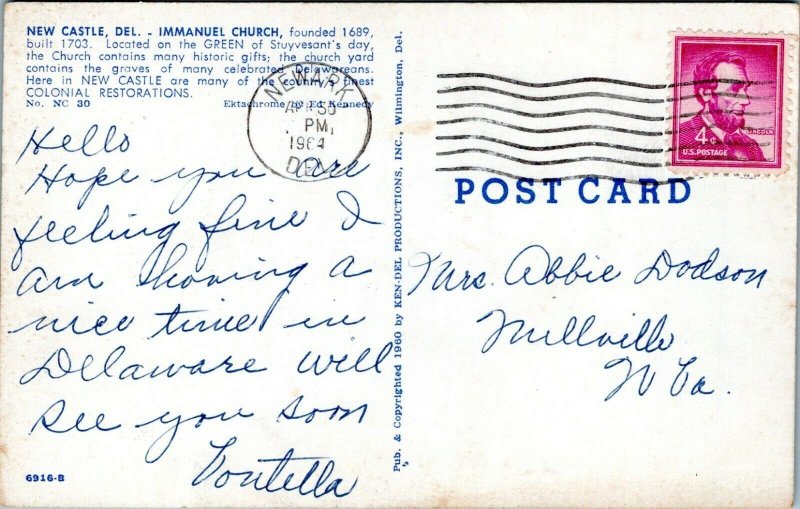 NEW CASTLE, DEL. - IMMANUEL CHURCH, founded 1689,
built 1703. Located on the GREEN of Stuyvesant's day,
the Church contains many historic gifts; the church yard
contains the graves of many celebrated Delawareans.
Here in NEW CASTLE are many of the country's finest
COLONIAL RESTORATIONS.
No. NC 30 Ektachrome by Ed Kennedy
NEWARK
APR 30
PM
1964
DEL.
Hello
Hope you are
feeling fine I
am having a
nice time in
Delaware will
see you soon
Vontella
6916-B
Pub. & Copyrighted 1960 by KEN-DEL PRODUCTIONS, INC., Wilmington, Del.
LINCOLN
4¢
U.S. POSTAGE
POST CARD
Mrs. Abbie Dodson
Millville
W Va.